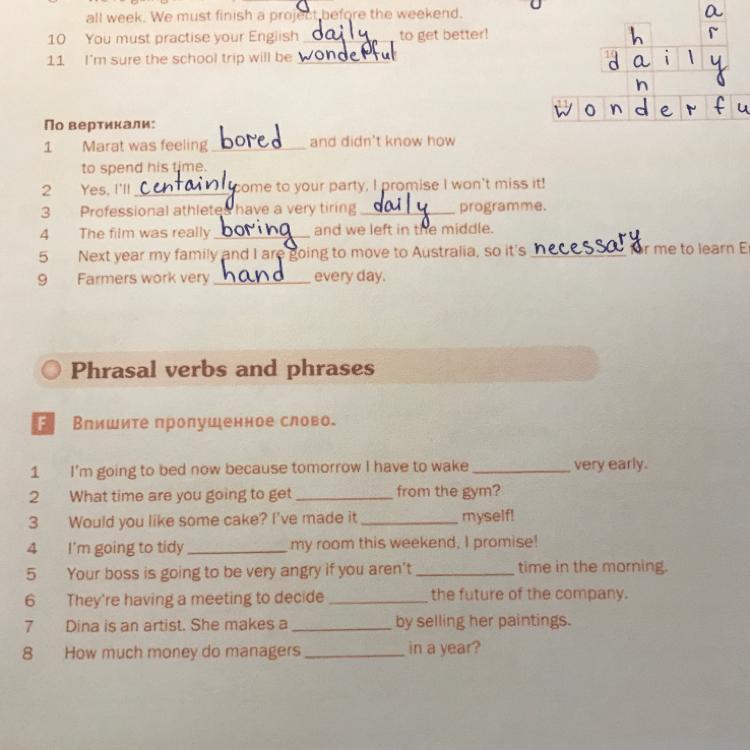 all week. We must finish a project before the weekend.
10 You must practise your English daily to get better!
11 I'm sure the school trip will be wonderful
a
h r
10 d a i l y
n
11 w o n d e r f u
По вертикали:
1 Marat was feeling bored and didn't know how
to spend his time.
2 Yes, I'll centainly come to your party, I promise I won't miss it!
3 Professional athletes have a very tiring daily programme.
4 The film was really boring and we left in the middle.
5 Next year my family and I are going to move to Australia, so it's necessary for me to learn
9 Farmers work very hand every day.
Phrasal verbs and phrases
F Впишите пропущенное слово.
1 I'm going to bed now because tomorrow I have to wake ________ very early.
2 What time are you going to get ________ from the gym?
3 Would you like some cake? I've made it ________ myself!
4 I'm going to tidy ________ my room this weekend, I promise!
5 Your boss is going to be very angry if you aren't ________ time in the morning.
6 They're having a meeting to decide ________ the future of the company.
7 Dina is an artist. She makes a ________ by selling her paintings.
8 How much money do managers ________ in a year?